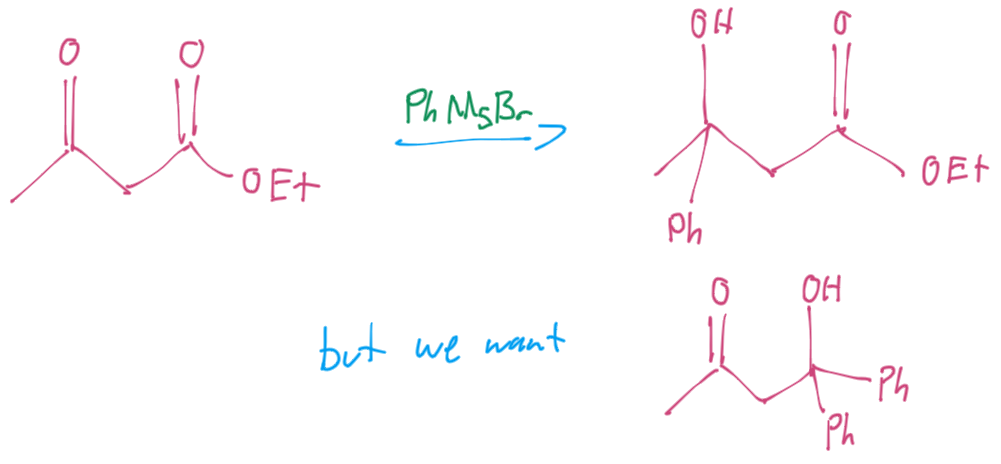 O O
OEt
PhMgBr
OH O
Ph
OEt
but we want
O OH
Ph
Ph